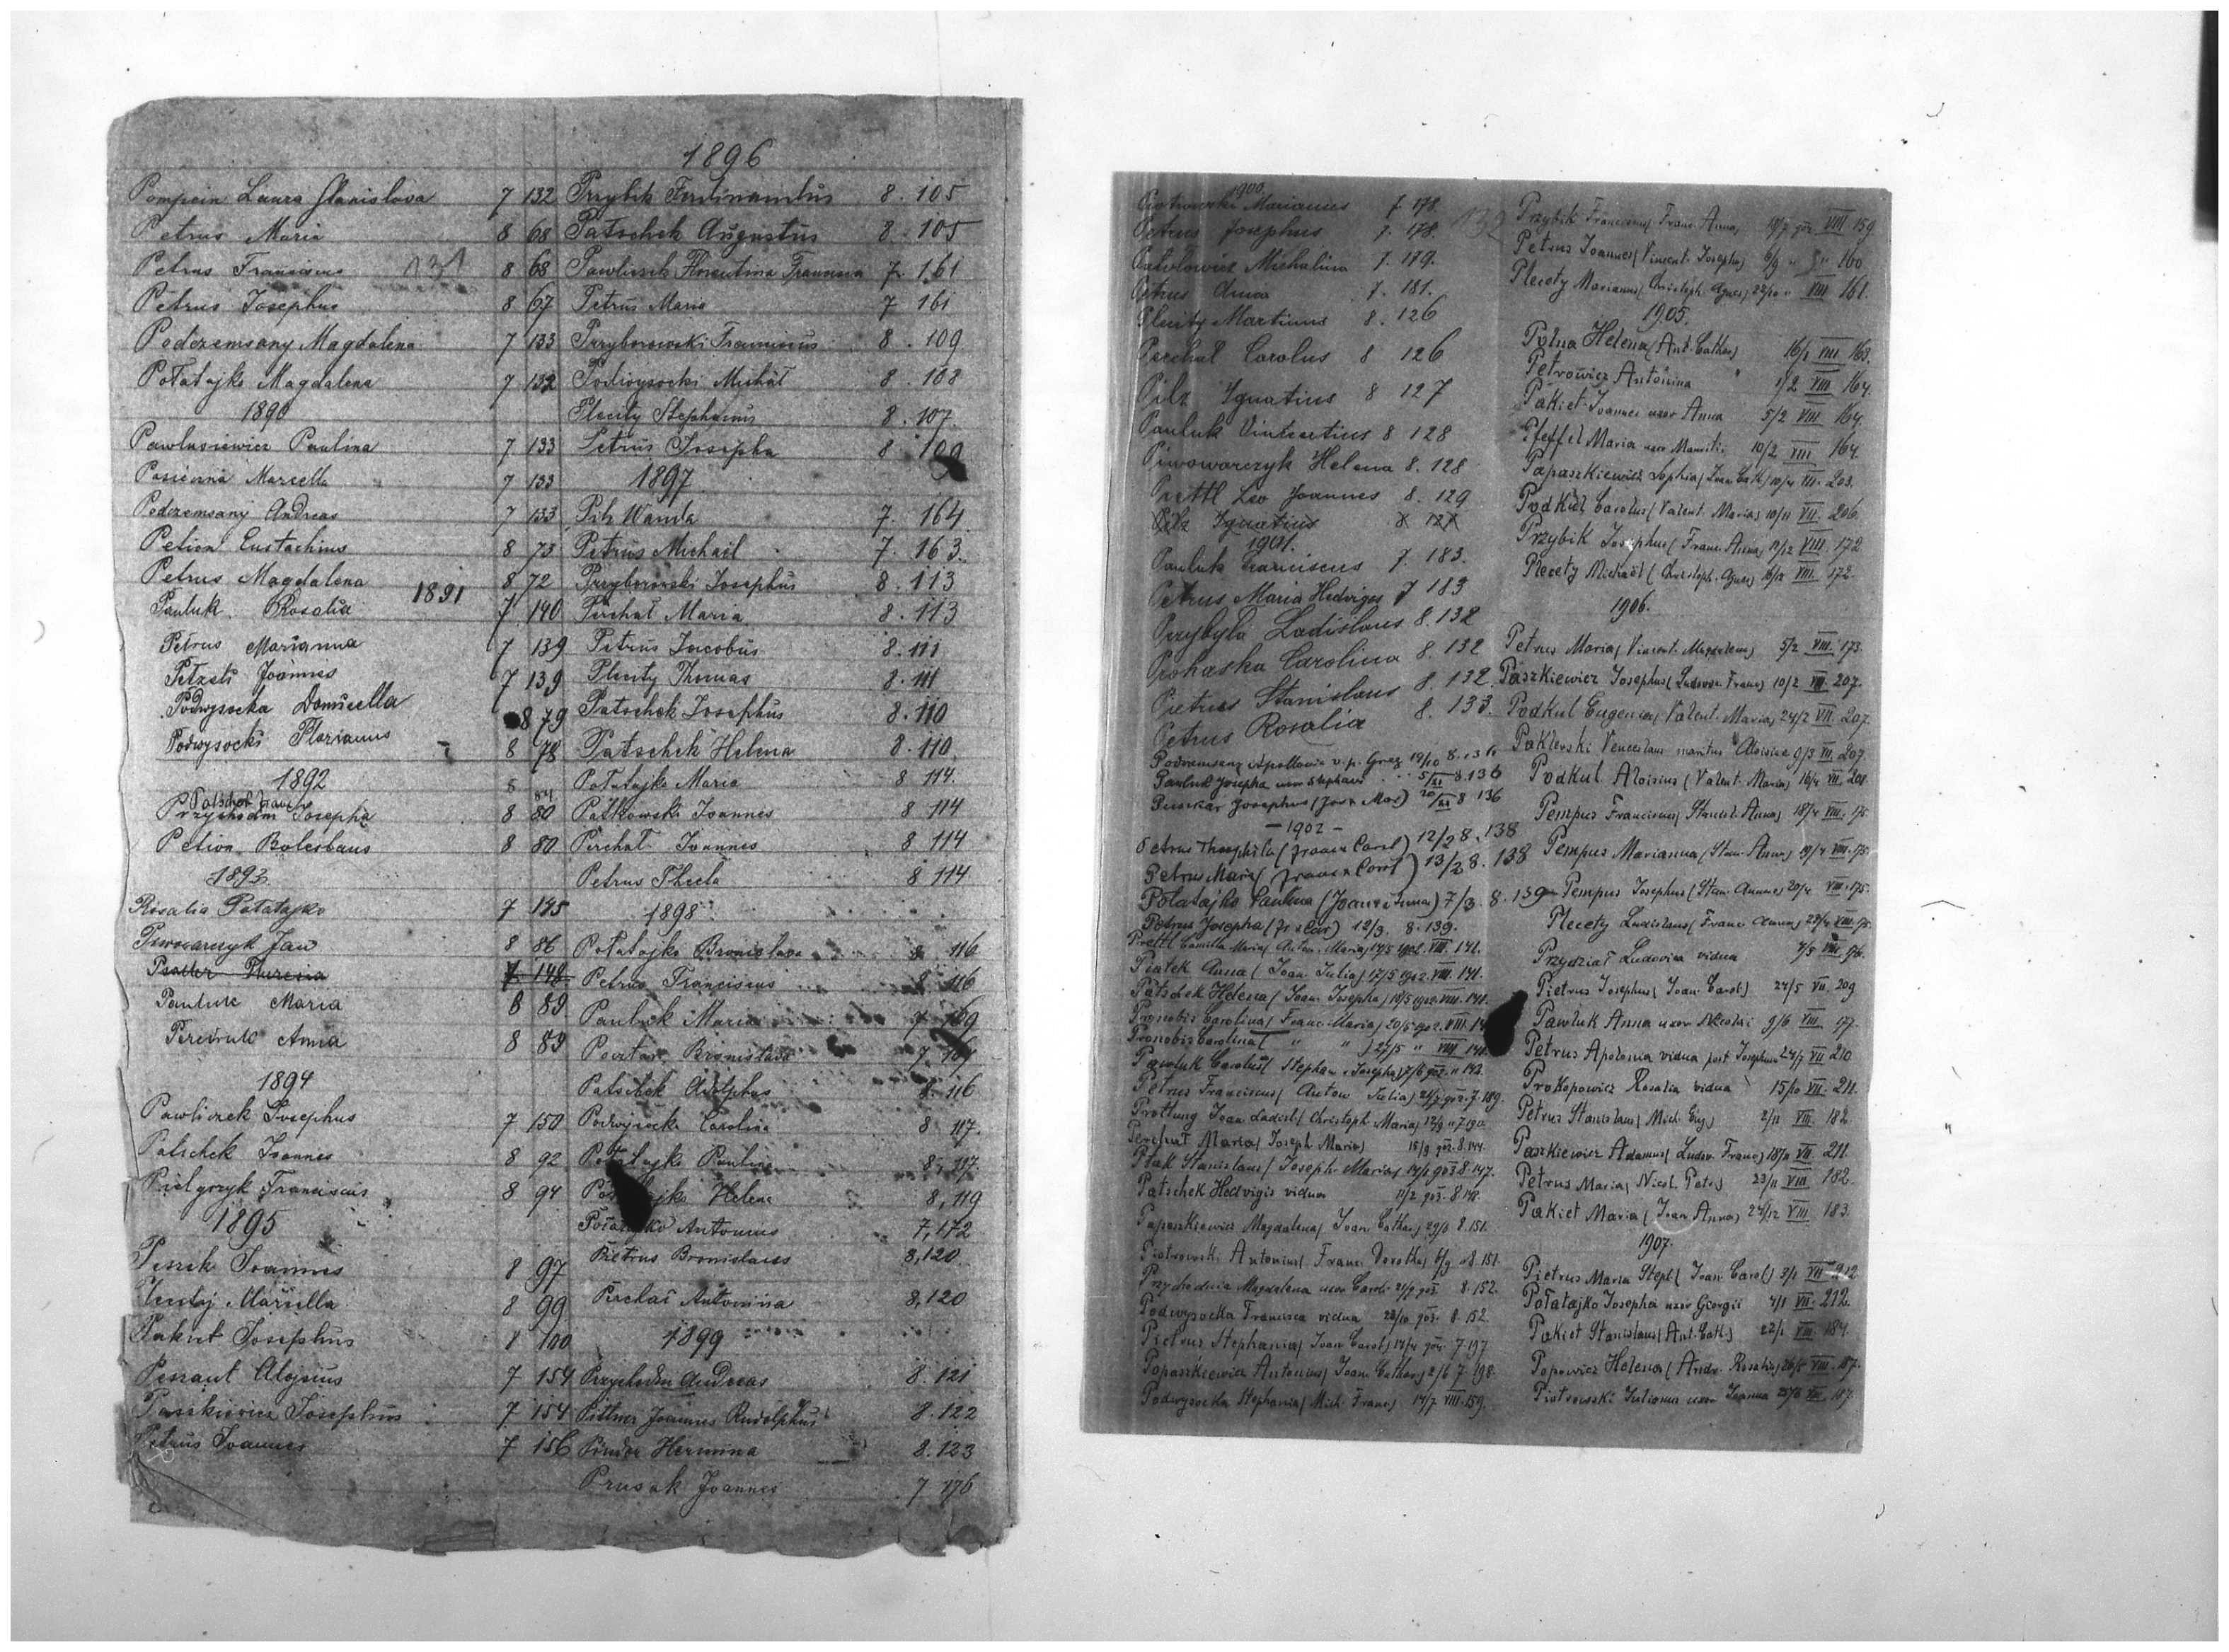 Pompein Laura Stanislava 7 132
Petrus Maria 8 68
Petrus Franciscus 131 8 68
Petrus Josephus 8 67
Podczemsany Magdalena 7 133
Potatajko Magdalena 7 132
1890
Pawlusiewicz Paulina 7 133
Marcella 7 133
Podczemsany Andreas 7 133
Petion Eustachius 8 73
Petrus Magdalena 8 72
1891
Pauluk Rosalia 7 140
Petrus Marianna 7 139
Joannes 7 139
Podwysocka Domicella 8 79
Podwysocki Florianus 8 78
1892
Patschek Franc
Przychodni Josepha 8 80
Petion Boleslaus 8 80
1893
Rosalia Potatajko 7 145
Piwowarczyk Jan 8 86
Theresia 7 148
Pauluk Maria 8 89
Anna 8 89
1894
Pawliczek Josephus 7 150
Patschek Joannes 8 92
Pielgrzyk Franciscus 8 94
1895
Joannes 8 97
8 99
Pakiet Josephus 8 100
Alojsius 7 154
Paszkiewicz Josephus 7 154
Petrus Joannes 7 156
1896
Przybik Ferdinandus 8. 105
Patschek Augustus 8. 105
Pawliczek Florentina Francisca 7. 161
Petrus Maria 7 161
Przyborowski Franciscus 8. 109
Podwysocki Michał 8. 108
Plecity Stephanus 8. 107
Petrus Josepha 8 109
1897
Pilz Wanda 7. 164
Petrus Michael 7. 163
Przyborowski Josephus 8. 113
Perchał Maria 8. 113
Petrus Jacobus 8. 111
Plecity Thomas 8. 111
Patschek Josephus 8. 110
Patschek Helena 8. 110
Potatajko Maria 8 114.
Patkowski Joannes 8 114
Perchał Joannes 8 114
Petrus Thecla 8 114
1898
Potatajko Bronislava 8 116
Petrus Franciscus 8 116
Pauluk Maria 7 169
Bronislava 7 169
Patschek Adolphus 8. 116
Podwysocka Carolina 8 117.
Potatajko Paulina 8. 117.
Helena 8, 119
Antonius 7, 172
Pietrus Bronislaus 8, 120
Perchał Antonina 8, 120
1899
Przychodni Andreas 8. 121
Pittner Joannes Rudolphus 8. 122
Pindor Hermina 8. 123
Prusak Joannes 7 176
1900
Piotrowski Marianus 7. 178.
Petrus Josephus 7. 178. 132
Michalina 7. 179.
Petrus Anna 7. 181.
Plecity Martinus 8. 126
Perchał Carolus 8 126
Pilz Ignatius 8 127
Pauluk Vincentius 8 128
Piwowarczyk Helena 8. 128
Prettl Leo Joannes 8. 129
Pilz Ignatius 8 127
1901.
Pauluk Franciscus 7. 183.
Petrus Maria Hedviges 7 183
Przybyła Ladislaus 8. 132
Prohaska Carolina 8. 132
Petrus Stanislaus 8. 132.
Petrus Rosalia 8. 133.
Apollonia v. p. Greg 19/10 8.136
Pawluk Josepha uxor Stephani 5/XI 8.136
Josephus (Jos x Mar) 20/XI 8 136
- 1902 -
Petrus Theophila (Franc x Carol) 12/2 8. 138
Petrus Maria (Franc x Carol) 13/2 8. 138
Potatajko Paulina (Joan x Anna) 7/3. 8. 139
Petrus Josepha (Fr x Car) 12/3. 8. 139.
Prettl Camilla Maria( Anton. Maria) 14/5 1902. VIII. 141.
Piatek Anna( Joan. Julia) 17/5 1902. VIII. 141.
Patschek Helena( Joan. Josepha) 18/5 1902. VIII. 141.
Pronobis Carolina( Franc. Maria) 20/5 902. VIII. 14
Pronobis Carolina( " " ) 27/5 " VIII 141.
Pawluk Carolus( Stephan. Josepha) 902. " 143.
Petrus Franciscus( Anton. Julia) 902. 7. 189.
Joan. Ladisl.( Christoph. Maria) 12/9 " 7. 190
Perchał Maria( Joseph. Maria) 15/9 902. 8. 144.
Ptak Stanislaus( Joseph. Maria) 14/1 903. 8. 147.
Patschek Hedvigis vidua 11/2 903. 8. 148.
Papaszkiewicz Magdalena( Joan. Cathar.) 29/8 8. 151.
Piotrowski Antonius( Franc. Dorothea) 6/9 " 8. 151.
Przychodnia Magdalena uxor Caroli 21/9 903. 8. 152.
Podwysocka Francisca vidua 28/10 903. 8. 152.
Pietrus Stephania( Joan. Carol.) 14/4 904. 7. 197
Papaszkiewicz Antonius( Joan. Cathar.) 2/6 7. 198.
Podwysocka Stephania( Mich. Franc.) 14/7 VIII. 159.
Przybik Franciscus( Franc. Anna) 19/7 904. VIII 159
Petrus Joannes( Vincent. Josepha) 6/9 " " 160.
Plecety Marianus( Christoph. Agnes) 22/10 " VIII 161.
1905.
Polna Helena( Ant. Cathar.) 16/1 VIII 163.
Petrowicz Antonina 1/2 VIII. 164.
Pakiet Joannes uxor Anna 5/2 VIII 164.
Pfeffel Maria uxor Mauriti. 10/2 VIII 164.
Papaszkiewicz Sophia( Joan. Cath.) 10/4 VII. 203.
Podkul Carolus( Valent. Maria) 10/11 VII. 206.
Przybik Josephus( Franc. Anna) 11/12 VIII. 172
Plecety Michael( Christoph. Agnes) VIII. 172.
1906.
Petrus Maria( Vincent. Magdalena) 5/2 VIII. 173.
Paszkiewicz Josephus( Ludov. Franc.) 10/2 VII. 207.
Podkul Eugenia( Valent. Maria) 24/2 VII. 207.
Paklerski Venceslaus maritus Aloisiae 9/3 VII. 207.
Podkul Aloisius( Valent. Maria) 16/4 VII. 208.
Pempus Franciscus( Stanisl. Anna) 18/4 VIII. 175.
Pempus Marianna( Stan. Anna) 19/4 VIII. 175.
Pempus Josephus( Stan. Anna) 20/4 VIII. 175.
Plecety Ladislaus( Franc. Anna) 23/4 VIII. 175.
Przydział Ludovica vidua 4/5 VIII. 176.
Pietrus Josephus( Joan. Carol.) 24/5 VII. 209
Pawluk Anna uxor Nicolai 9/6 VIII. 177.
Petrus Apolonia vidua post Josephum 24/7 VII 210
Prokopowicz Rosalia vidua 15/10 VII. 211.
Petrus Stanislaus( Mich. Eug.) 2/11 VIII. 182.
Paszkiewicz Adamus( Ludov. Franc.) 18/11 VII. 211.
Petrus Maria( Nicol. ) 23/11 VIII 182.
Pakiet Maria( Joan. Anna) 24/12 VIII. 183.
1907.
Pietrus Maria Steph( Joan. Carol.) 3/1 VII 212
Potatajko Josepha uxor Georgii 4/1 VII. 212.
Pakiet Stanislaus( Ant. Cath.) 22/1 VIII. 184.
Popowicz Helena( Andr. Rosalia) 26/5 VIII. 187.
Piotrowski uxor Joanna VIII. 187.